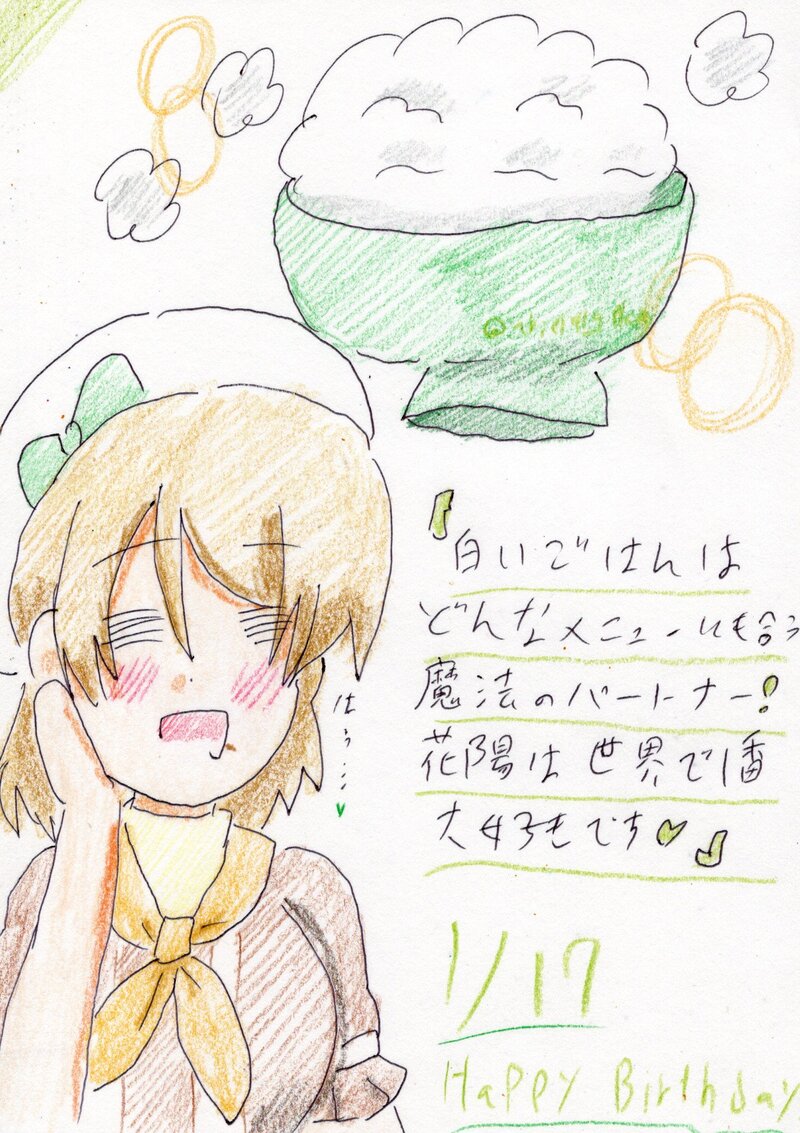 『白いごはんは
どんなメニューにも合う
魔法のパートナー!
花陽は世界で1番
大好きです♥』
はぅ…♥
1/17
Happy Birthday